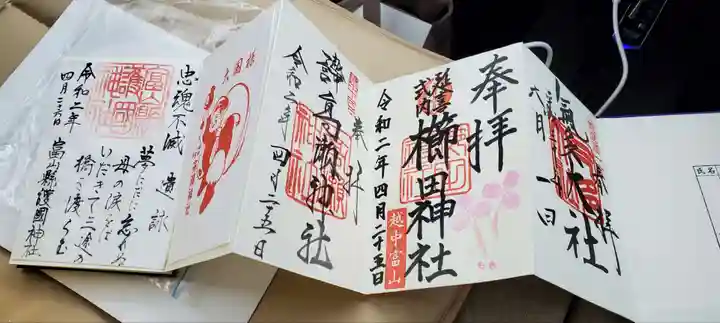 奉拝
延喜式内
櫛田神社
令和二年四月二十五日
越中富山
奉拝
高瀬神社
令和二年四月二五日
大國様
忠魂不滅
遺詠
夢にだに忘れぬ
母の涙をば
いだきて三途の
橋を渡らむ
富山縣護國神社
令和二年
四月二六日
奉拝
氣多大社
六月一日
氏名